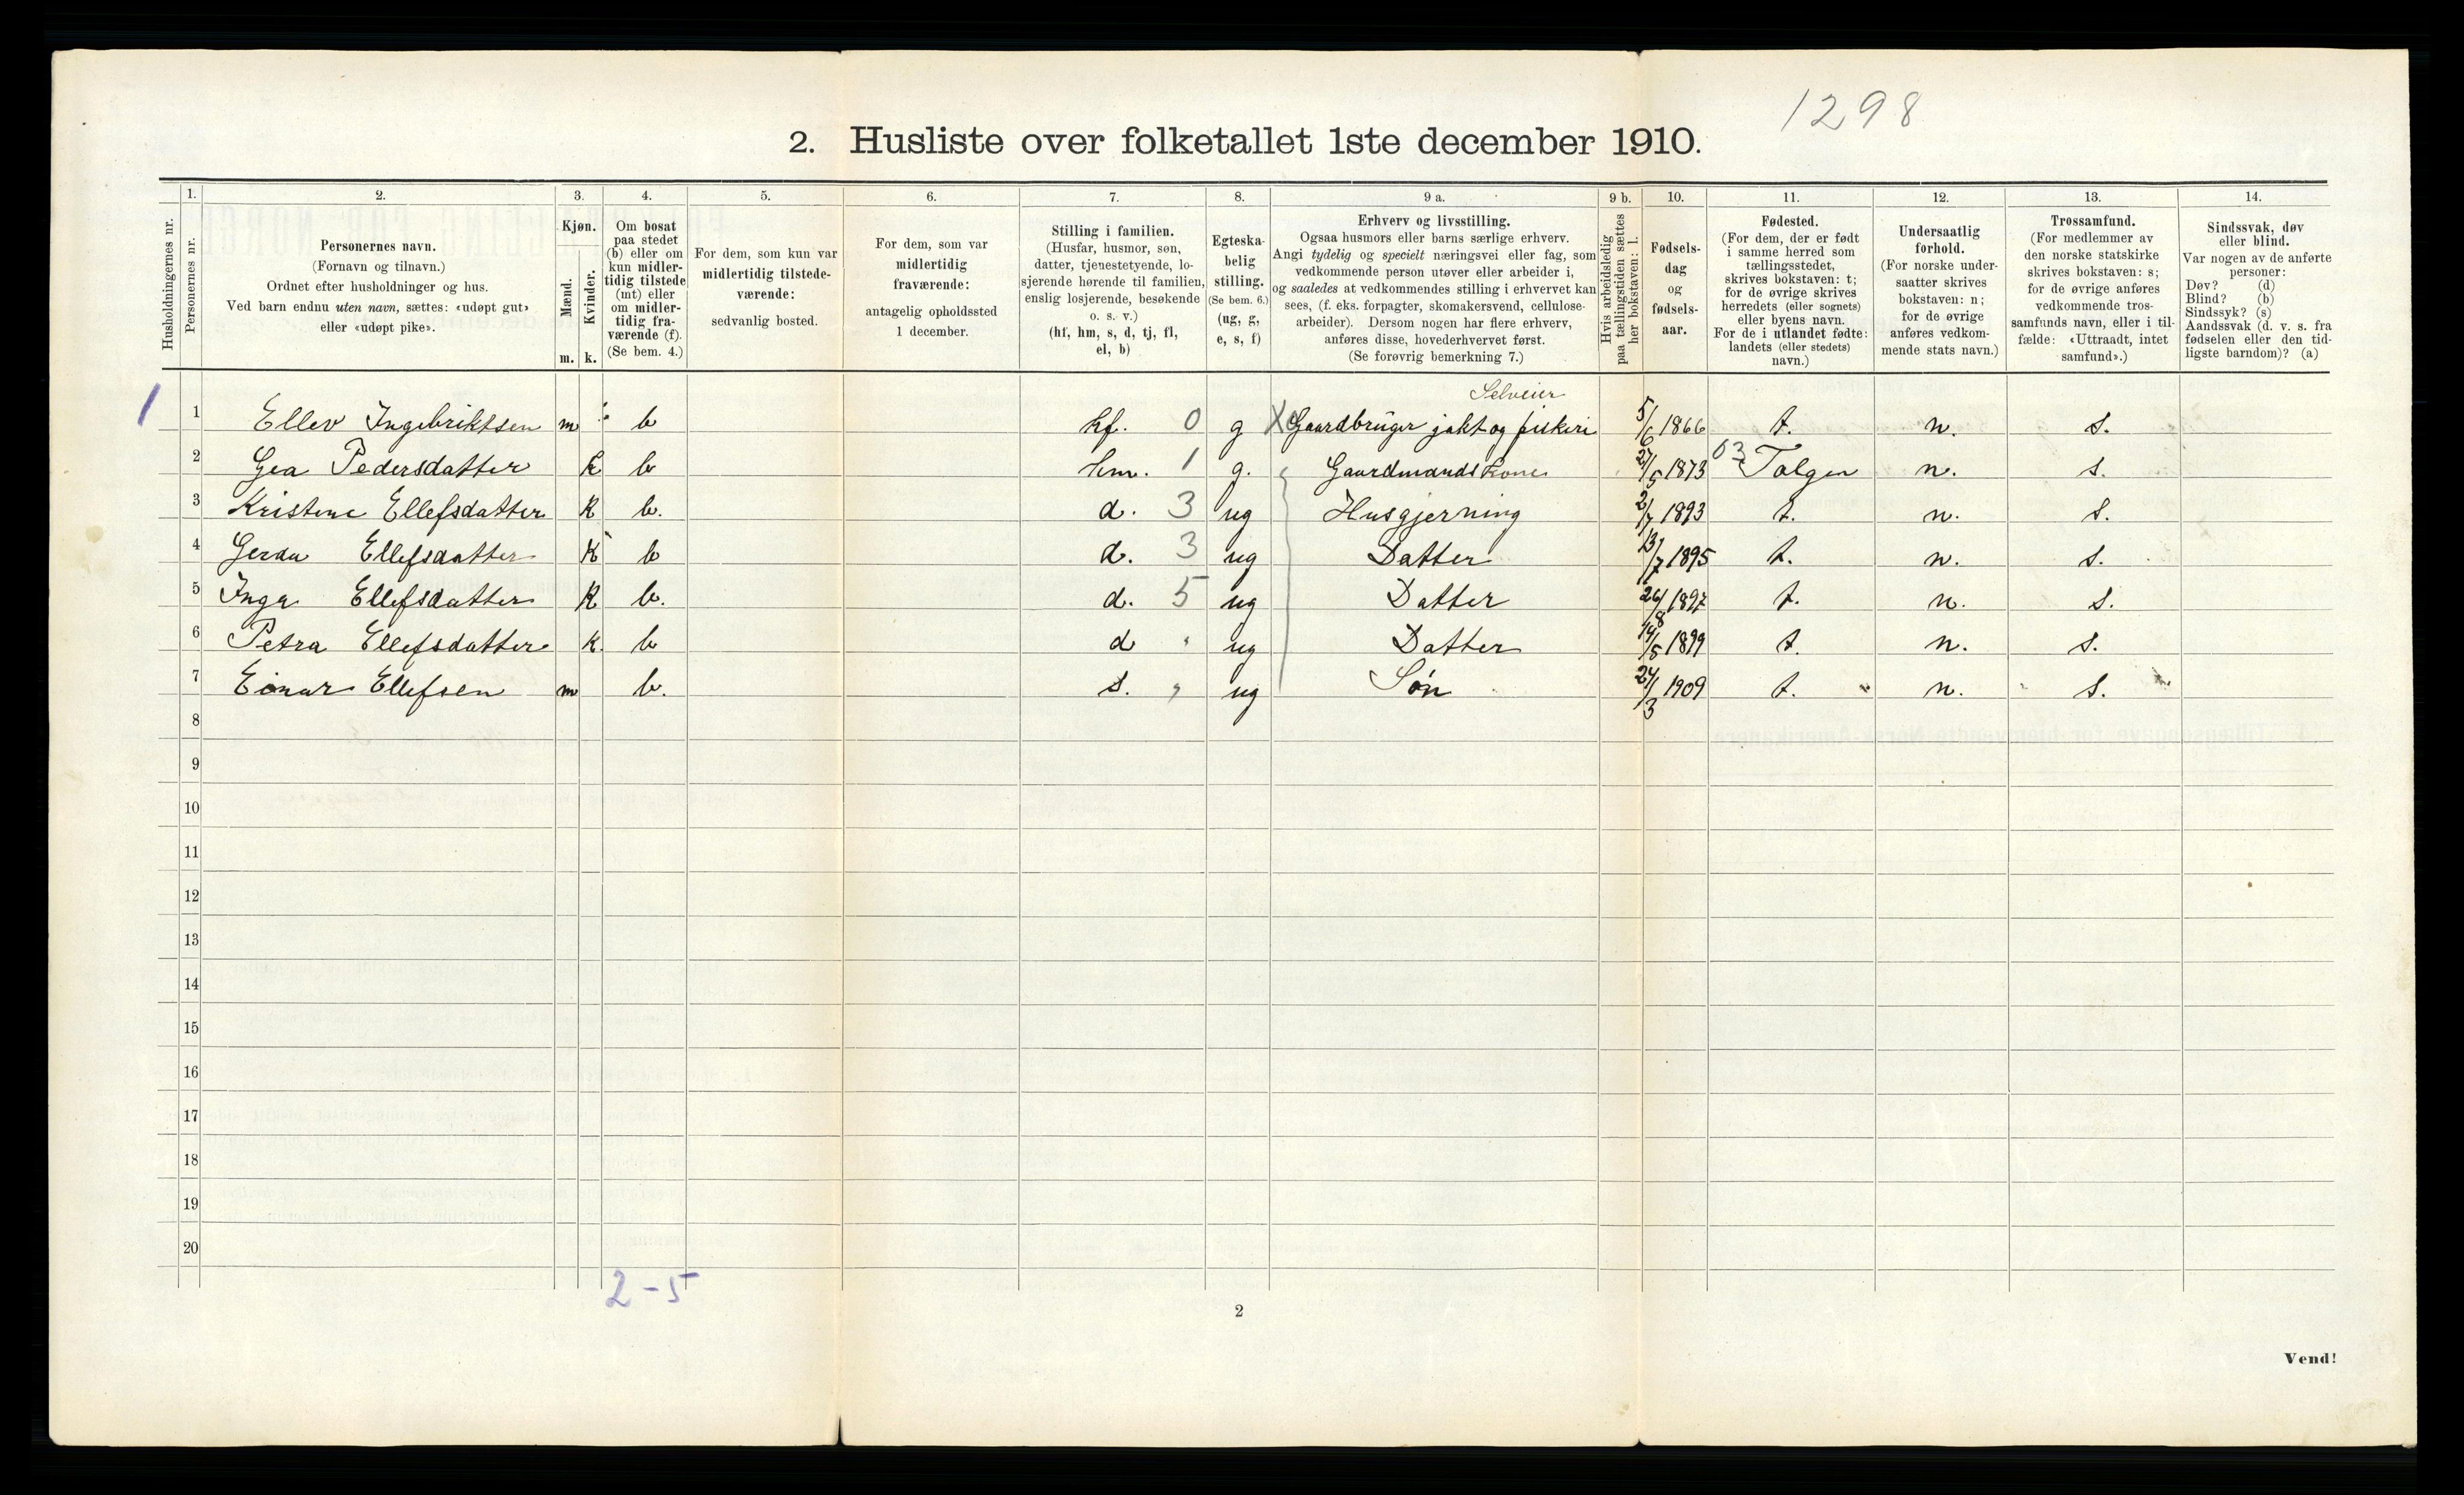 1298
2. Husliste over folketallet 1ste december 1910.
Husholdningernes nr.
1.
Personernes nr.
2.
Personernes navn.
(Fornavn og tilnavn.)
Ordnet efter husholdninger og hus.
Ved barn endnu uten navn, sættes: «udøpt gut»
eller «udøpt pike».
3.
Kjøn.
Mænd.
Kvinder.
m. k.
4.
Om bosat
paa stedet
(b) eller om
kun midler-
tidig tilstede
(mt) eller
om midler-
tidig fra-
værende (f).
(Se bem. 4.)
5.
For dem, som kun var
midlertidig tilstede-
værende:
sedvanlig bosted.
6.
For dem, som var
midlertidig
fraværende:
antagelig opholdssted
1 december.
7.
Stilling i familien.
(Husfar, husmor, søn,
datter, tjenestetyende, lo-
sjerende hørende til familien,
enslig losjerende, besøkende
o. s. v.)
(hf, hm, s, d, tj, fl,
el, b)
8.
Egteska-
belig
stilling.
(Se bem. 6.)
(ug, g,
e, s, f)
9 a.
Erhverv og livsstilling.
Ogsaa husmors eller barns særlige erhverv.
Angi tydelig og specielt næringsvei eller fag, som
vedkommende person utøver eller arbeider i,
og saaledes at vedkommendes stilling i erhvervet kan
sees, (f. eks. forpagter, skomakersvend, cellulose-
arbeider). Dersom nogen har flere erhverv,
anføres disse, hovederhvervet først.
(Se forøvrig bemerkning 7.)
9 b.
Hvis arbeidsledig
paa tællingstiden sættes
her bokstaven: l.
10.
Fødsels-
dag
og
fødsels-
aar.
11.
Fødested.
(For dem, der er født
i samme herred som
tællingsstedet,
skrives bokstaven: t;
for de øvrige skrives
herredets (eller sognets)
eller byens navn.
For de i utlandet fødte:
landets (eller stedets)
navn.)
12.
Undersaatlig
forhold.
(For norske under-
saatter skrives
bokstaven: n;
for de øvrige
anføres vedkom-
mende stats navn.)
13.
Trossamfund.
(For medlemmer av
den norske statskirke
skrives bokstaven: s;
for de øvrige anføres
vedkommende tros-
samfunds navn, eller i til-
fælde: «Uttraadt, intet
samfund».)
14.
Sindssvak, døv
eller blind.
Var nogen av de anførte
personer:
Døv? (d)
Blind? (b)
Sindssyk? (s)
Aandssvak (d. v. s. fra
fødselen eller den tid-
ligste barndom)? (a)
Selveier
1 1 Ellev Ingebriktsen m b hf. 0 g X Gaardbruger jakt og fiskeri 5/6 1866 t. n. s.
2 Gea Pedersdatter k b hm. 1 g. Gaardmandskone 27/5 1873 03 Tolgen n. s.
3 Kristine Ellefsdatter k b. d. 3 ug Husgjerning 2/7 1893 t. n. s.
4 Gerda Ellefsdatter k b d. 3 ug Datter 13/7 1895 t. n. s.
5 Inga Ellefsdatter k b. d. 5 ug Datter 26/8 1897 t. n. s.
6 Petra Ellefsdatter k. b d " ug Datter 14/5 1899 t. n. s.
7 Einar Ellefsen m b. s. " ug Søn 24/3 1909 t. n. s.
8
9
10
11
12
13
14
15
16
17
18
19
20
2-5
2
Vend!